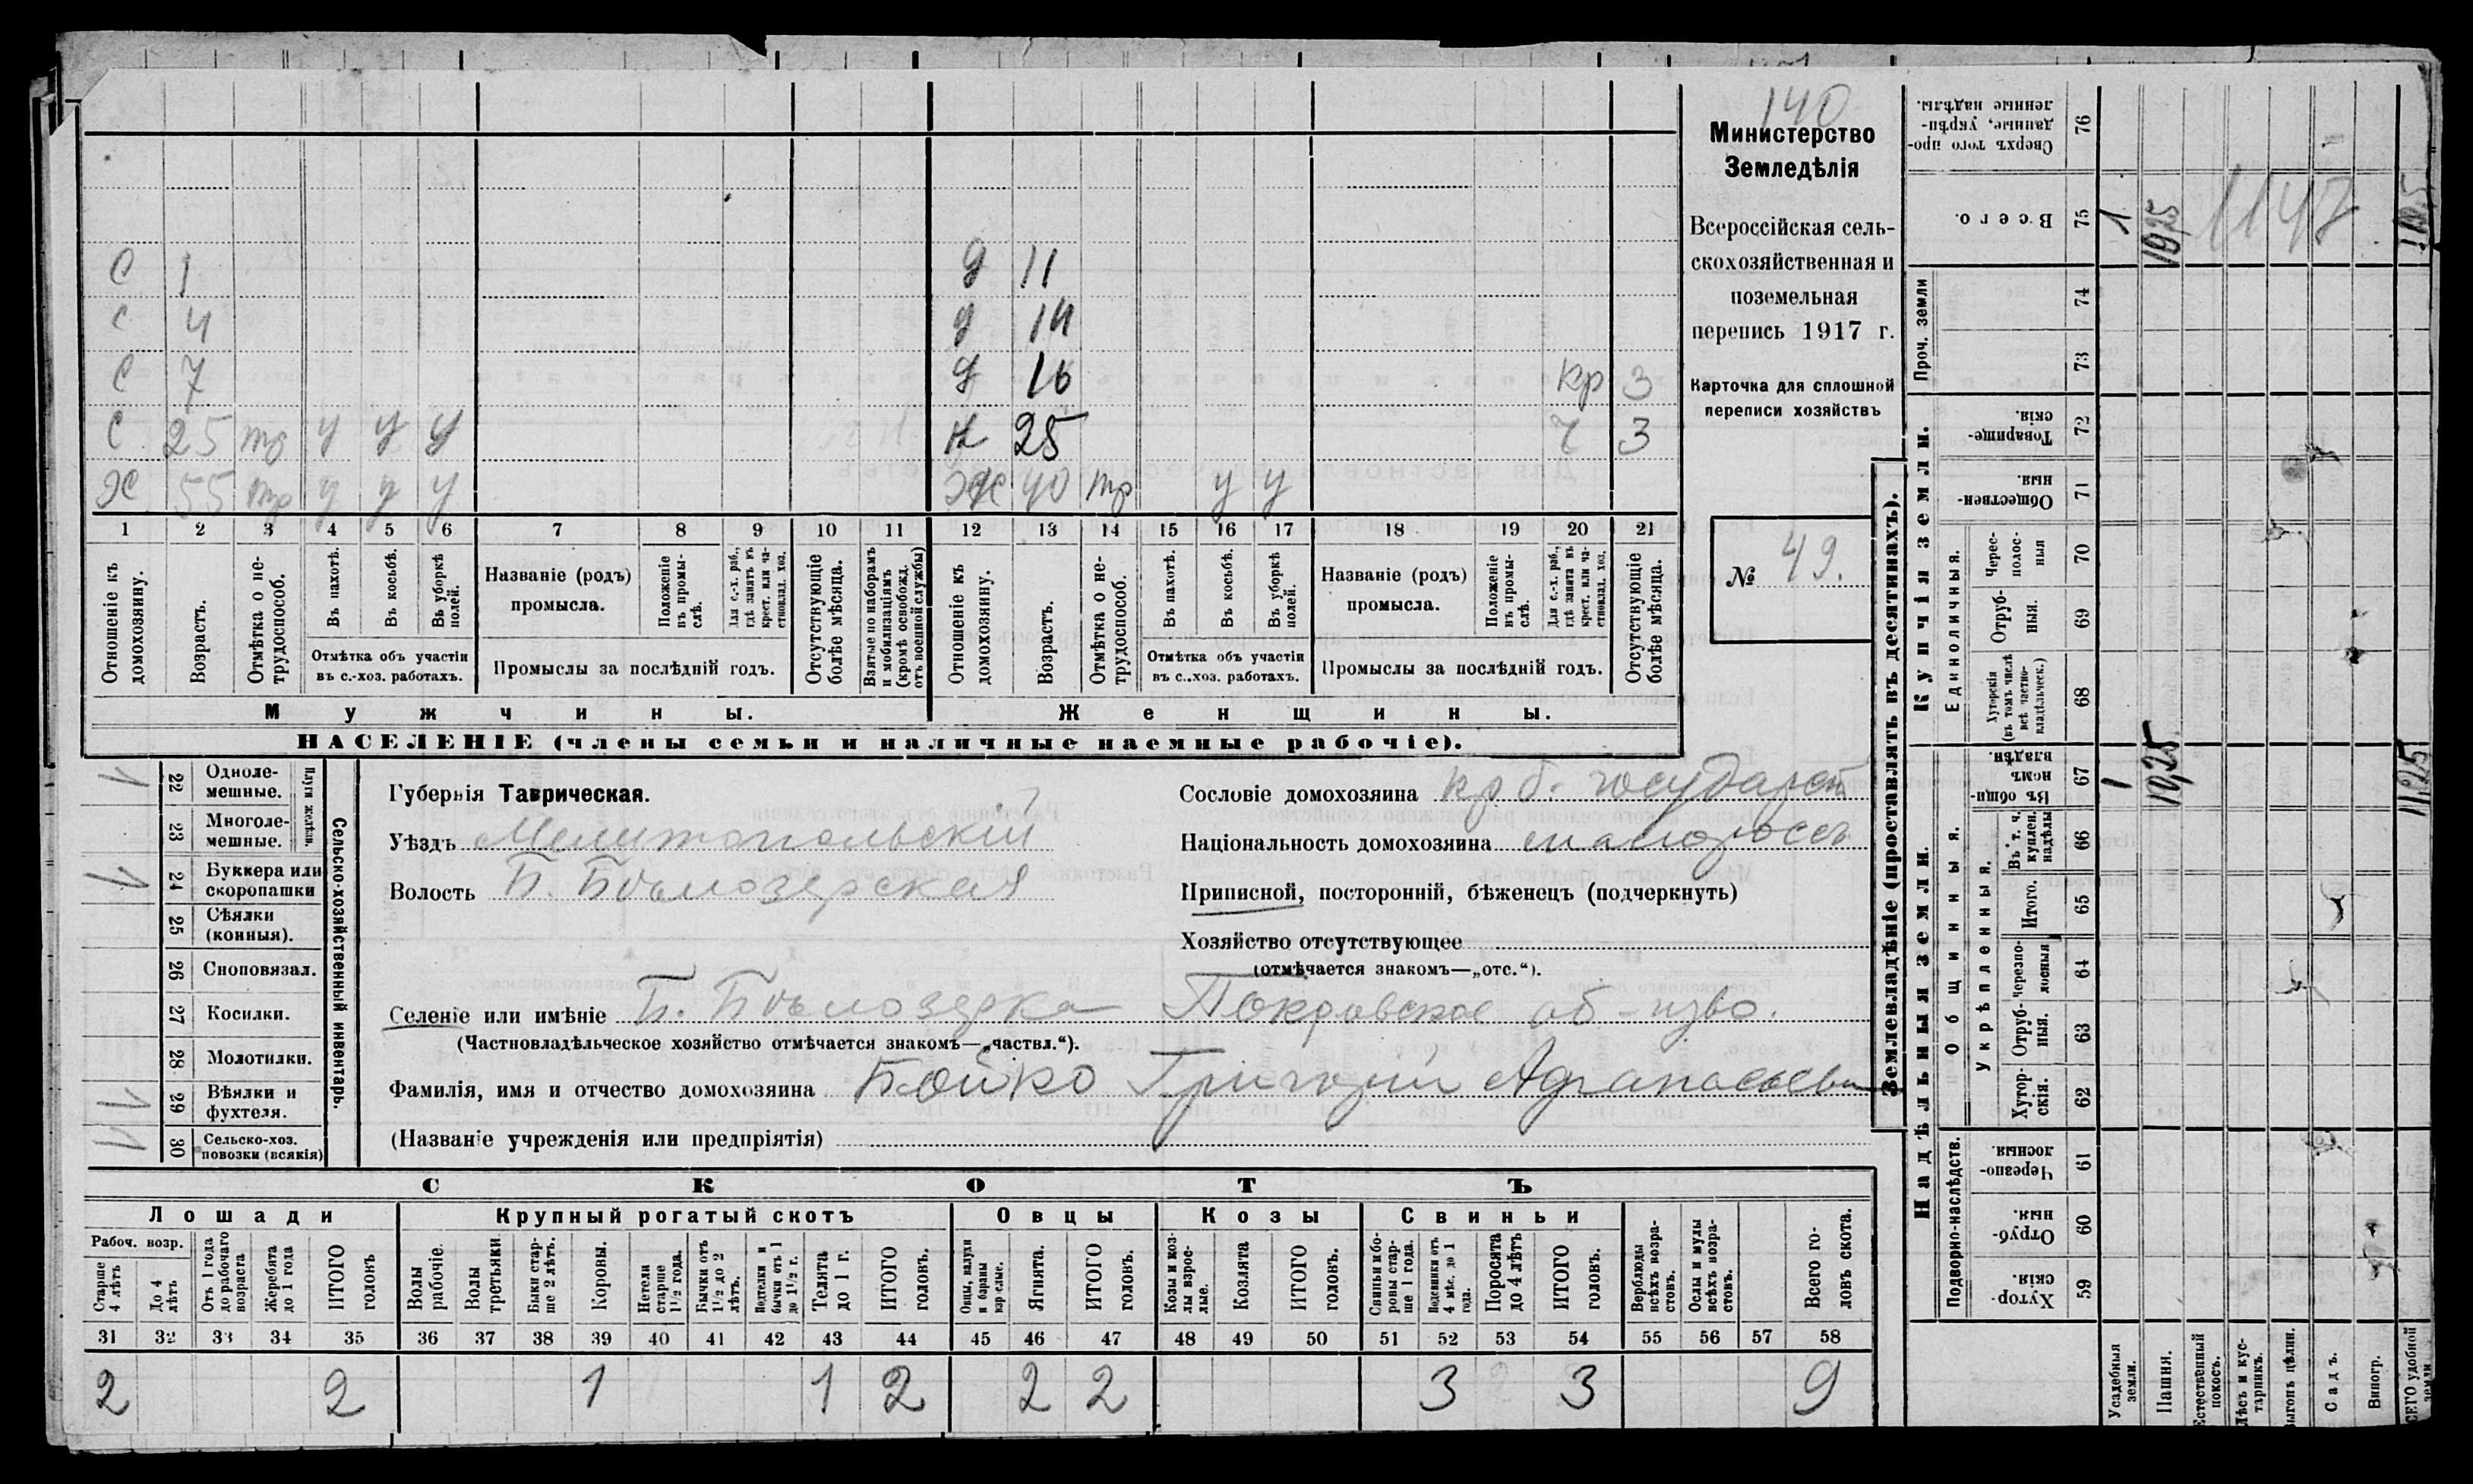 140
Министерство
Земледѣлія
Всероссійская сель-
скохозяйственная и
поземельная
перепись 1917 г.
Карточка для сплошной
переписи хозяйствъ
№ 49.
С 1
С 4
С 7
С 25 тр у у у
Ж 55 тр у у у
д 11
д 14
д 16 кр 3
н 25 ч 3
Ж 40 тр у у
1 2 3 4 5 6 7 8 9 10 11 12 13 14 15 16 17 18 19 20 21
Отношеніе къ домохозяину.
Возрастъ.
Отмѣтка о не-трудоспособ.
Въ пахотѣ.
Въ косьбѣ.
Въ уборкѣ полей.
Отмѣтка объ участіи
въ с.-хоз. работахъ.
Названіе (родъ)
промысла.
Положеніе въ промы-слѣ.
Для с.-х. раб., гдѣ занятъ въ крест. или ча-стновлад. хоз.
Промыслы за послѣдній годъ.
Отсутствующіе болѣе мѣсяца.
Взятые по наборамъ и мобилизаціямъ (кромѣ освобожд. отъ военной службы)
Отношеніе къ домохозяину.
Возрастъ.
Отмѣтка о не-трудоспособ.
Въ пахотѣ.
Въ косьбѣ.
Въ уборкѣ полей.
Отмѣтка объ участіи
въ с.-хоз. работахъ.
Названіе (родъ)
промысла.
Положеніе въ промы-слѣ.
Для с.-х. раб., гдѣ занята въ крест. или ча-стновлад. хоз.
Промыслы за послѣдній годъ.
Отсутствующіе болѣе мѣсяца.
Мужчины.
Женщины.
НАСЕЛЕНІЕ (члены семьи и наличные наемные рабочіе).
22 Одноле-мешные.
23 Многоле-мешные.
Плуги желѣзн.
24 Буккера или скоропашки
25 Сѣялки (конныя).
26 Сноповязал.
27 Косилки.
28 Молотилки.
29 Вѣялки и фухтеля.
30 Сельско-хоз. повозки (всякія)
Сельско-хозяйственный инвентарь.
Губернія Таврическая.
Уѣздъ Мелитопольскій
Волость Б. Бѣлозерская
Сословіе домохозяина кр б. государст
Національность домохозяина малороссъ
Приписной, посторонній, бѣженецъ (подчеркнуть)
Хозяйство отсутствующее
(отмѣчается знакомъ—„отс.“).
Селеніе или имѣніе Б. Бѣлозерка Покровское об-изво.
(Частновладѣльческое хозяйство отмѣчается знакомъ—„частвл.“).
Фамилія, имя и отчество домохозяина Бойко Григорій
(Названіе учрежденія или предпріятія)
СКОТЪ
Лошади
Крупный рогатый скотъ
Овцы
Козы
Свиньи
Рабоч. возр.
Старше 4 лѣтъ
До 4 лѣтъ
Отъ 1 года до рабочаго возраста
Жеребята до 1 года
ИТОГО головъ
Волы рабочіе.
Волы третьяки.
Быки стар-ше 2 лѣтъ.
Коровы.
Нетели старше 1½ года.
Бычки отъ 1½ до 2 лѣтъ.
Подтелки и бычки отъ 1 до 1½ г.
Телята до 1 г.
ИТОГО головъ.
Овцы, валухи и бараны взрослые.
Ягнята.
ИТОГО головъ.
Козы и коз-лы взрос-лые.
Козлята
ИТОГО головъ.
Свиньи и бо-ровы стар-ше 1 года.
Подсвинки отъ 4 мѣс. до 1 года.
Поросята до 4 лѣтъ
ИТОГО головъ.
Верблюды всѣхъ возра-стовъ.
Ослы и мулы всѣхъ возра-стовъ.
Всего го-ловъ скота.
31 32 33 34 35 36 37 38 39 40 41 42 43 44 45 46 47 48 49 50 51 52 53 54 55 56 57 58
2 2 1 1 2 2 2 3 3 9
Землевладѣніе (проставлять въ десятинахъ).
Надѣльныя земли.
Купчія земли.
Проч. земли
Подворно-наслѣдств.
Общинныя.
Укрѣпленныя.
Единоличныя.
59 Хутор-скія.
60 Отруб-ныя.
61 Черезпо-лосныя.
62 Хутор-скія.
63 Отруб-ныя.
64 черезпо-лосныя
65 Итого.
66 Въ т. ч. куплен. надѣлы
67 Въ общи-номъ владѣн.
68 Хуторскія (въ томъ числѣ всѣ частно-владѣльческ.)
69 Отруб-ныя.
70 Черес-полос-ныя
71 Обществен-ныя.
72 Товарище-скія.
73
74
75 Всего.
76 Сверхъ того про-данные, укрѣп-ленные надѣлы.
1 10,25 11,25
1 10,25 1147 11,25
Усадебныя земли.
Пашня.
Естественный покосъ.
Лѣсъ и кус-тарникъ.
Выгонъ цѣлин.
Садъ.
Виногр.
ВСЕГО удобной земли